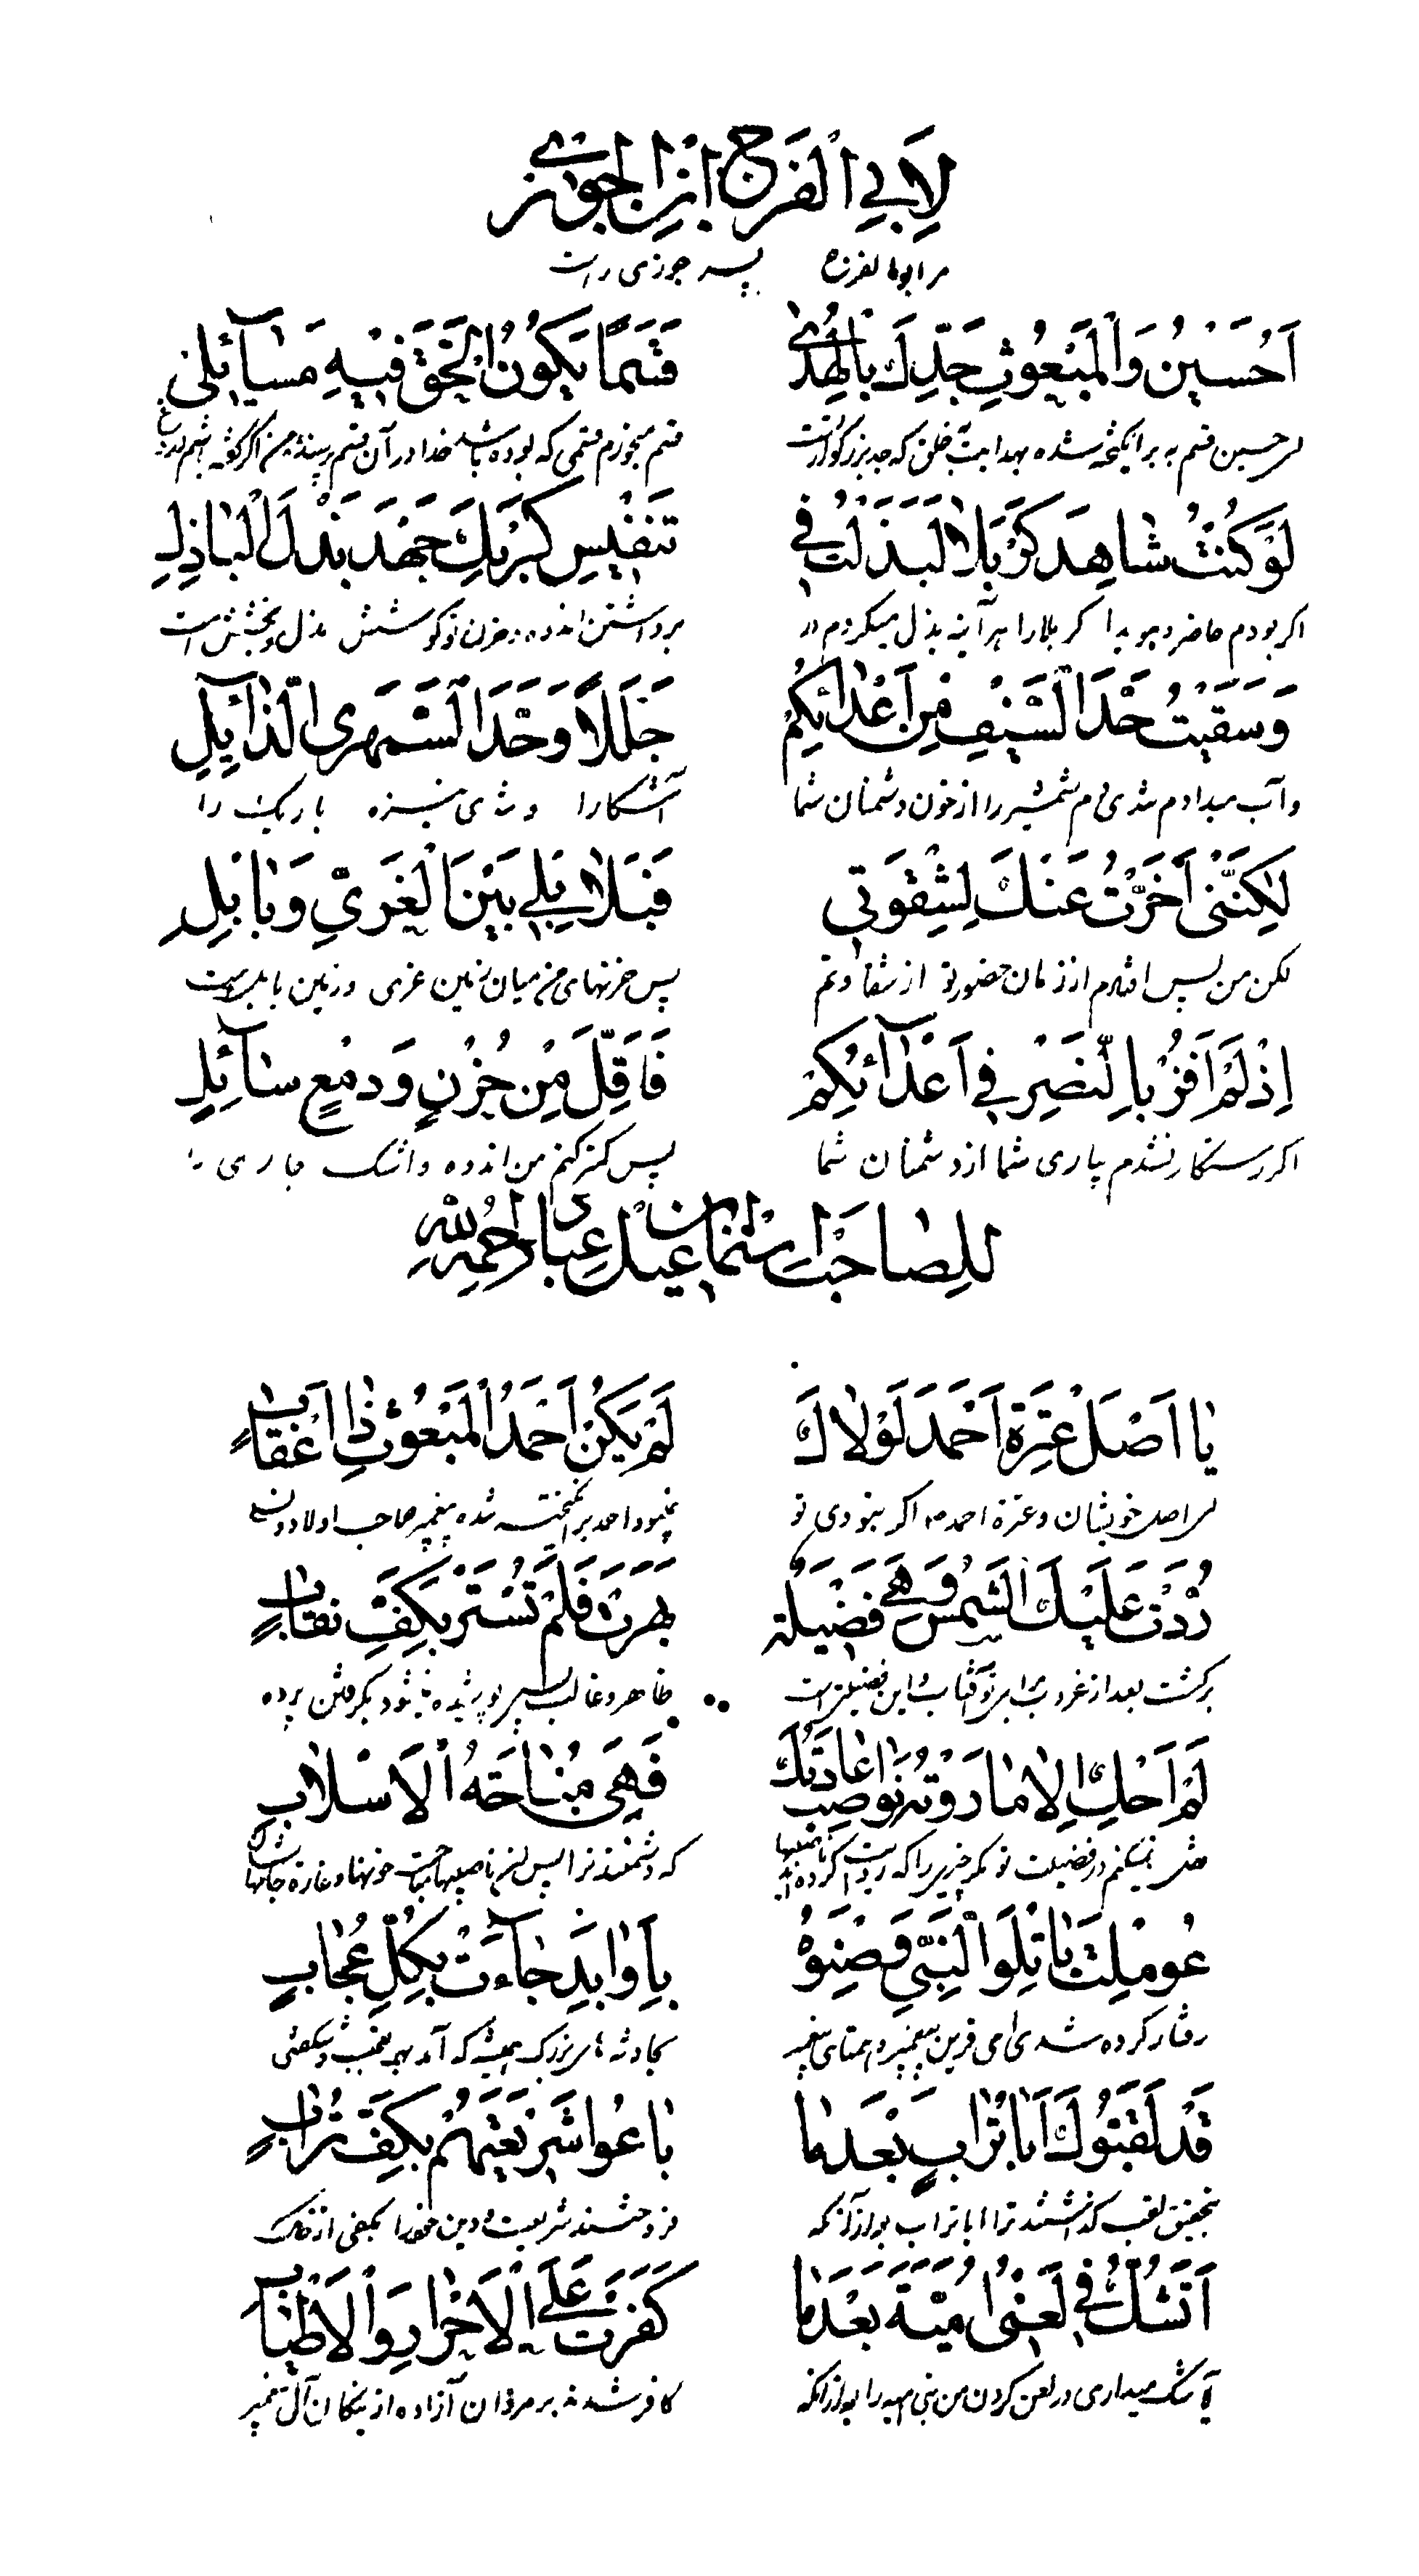 لِأَبِي الْفَرَجِ ابْنِ الْجَوْزِيّ
مر ابو الفرج پسر جوزی راست
اَحُسَيْنُ وَالْمَبْعُوثِ جَدِّكَ بِالْهُدىٰ قَسَمًا يَكُونُ الْحَقُّ فِيْهِ مَسٰآئِلي
ای حسین قسم به برانگیخته شده بهدایت خلق که جد بزرگوار تست قسم میخورم قسمی که بوده باشد خدا در آن قسم
لَوْ كُنْتُ شٰاهِدَ كَرْبَلٰا لَبَذَلْتُ في تَنْفِيْسِ كَرْبِكَ جَهْدَ بَذْلِ الْبٰاذِلِ
اکر بودم حاضر کربلا را هر آینه بذل میکردم در برداشتن اندوه و حزن تو کوشش بذل و بخشش است
وَسَقَيْتُ حَدَّ السَّيْفِ مِنْ اَعْدٰائِكُمْ جَلَلًا وَحَدَّ السَّمْهَرِىِ الذّٰايِلِ
و آب میدادم تندی دم شمشیر را از خون دشمنان شما آشکارا و تندی نیزه باریک را
لٰكِنَّني اُخِّرْتُ عَنْكَ لِشِقْوَتي فَبَلٰابِلي بَيْنَ الْغَرِيِّ وَبٰابِلِ
لکن من پس افتادم از زمان حضور تو از شقاوتم پس حزنهای من میان زمین غری و زمین بابل است
اِذْ لَمْ اَفُزْ بِالنَّصْرِ في اَعْدٰآئِكُمْ فَاَقِلَّ مِنْ حُزْنٍ وَدَمْعٍ سٰآئِلِ
اکر رستکار نشدم بیاری شما از دشمنان شما پس کمتر کنم من اندوه و اشک جاری را
لِلصّٰاحِبِ اِسْمٰاعِيْلَ بْنِ عَبّٰادٍ رَحِمَهُ اللّٰهُ
يٰا اَصْلَ عِتْرَةِ اَحْمَدَ لَوْلٰاكَ لَمْ يَكُنْ اَحْمَدُ الْمَبْعُوثُ ذٰا اَعْقٰابِ
ای اصل خویشان و عترة احمد اکر نبودی تو نمیبود احمد برانگیخته شده پیغمبر صاحب اولاد و نسل
رُدَّتْ عَلَيْكَ الشَّمْسُ وَهِيَ فَضِيْلَةٌ بَهَرَتْ فَلَمْ تُسْتَرْ بِكَفِّ نِقٰابِ
برکشت بعد از غروب برای تو آفتاب و این فضیلتی است ظاهر و غالب پوشیده نشود بکرفتن پرده
لَمْ اَحْكِ اِلّٰا مٰا رَوَتْهُ نَوٰاصِبٌ عٰادَتْكَ فَهْيَ مُبٰاحَةُ الْاَسْلٰابِ
نقل نمیکنم در فضیلت تو مکر چیزی را که روایت کرده‌اند ناصبیها که دشمنند ترا پس
عُومِلْتَ يٰا تِلْوَ النَّبِيِّ وَصِنْوَهُ بِاَوٰابِدٍ جٰآءَتْ بِكُلِّ عُجٰابِ
رفتار کرده شدی ای قرین پیغمبر و همتای پیغمبر بحادثه های بزرک که آمد بهر
قَدْ لَقَّبُوكَ اَبٰا تُرٰابٍ بَعْدَمٰا بٰاعُوا شَرِيْعَتَهُمْ بِكَفِّ تُرٰابِ
بتحقیق لقب کذاشتند ترا ابا تراب بعد از آنکه فروختند شریعت و دین خود را بکفی از خاک
اَتَشُكُّ في لَعْني اُمَيَّةَ بَعْدَمٰا كَفَرَتْ عَلَى الْاَحْرٰارِ وَالْاَطْيٰابِ
آیا شک میداری در لعن کردن من بنی امیه را بعد از آنکه کافر شدند بر مردان آزاده از نیکان آل پیغمبر